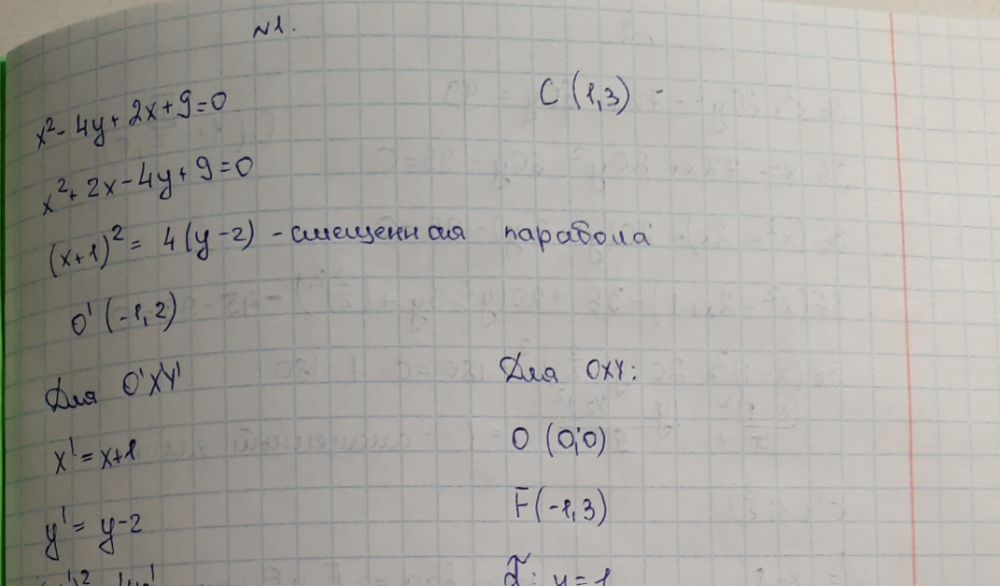 N1.
x²-4y+2x+9=0
C (1,3)
x²+2x-4y+9=0
(x+1)²=4(y-2) - смещенная парабола
O'(-1,2)
Для O'X'Y'
Для OXY:
x'=x+1
O (0;0)
y'=y-2
F(-1,3)
: y=1